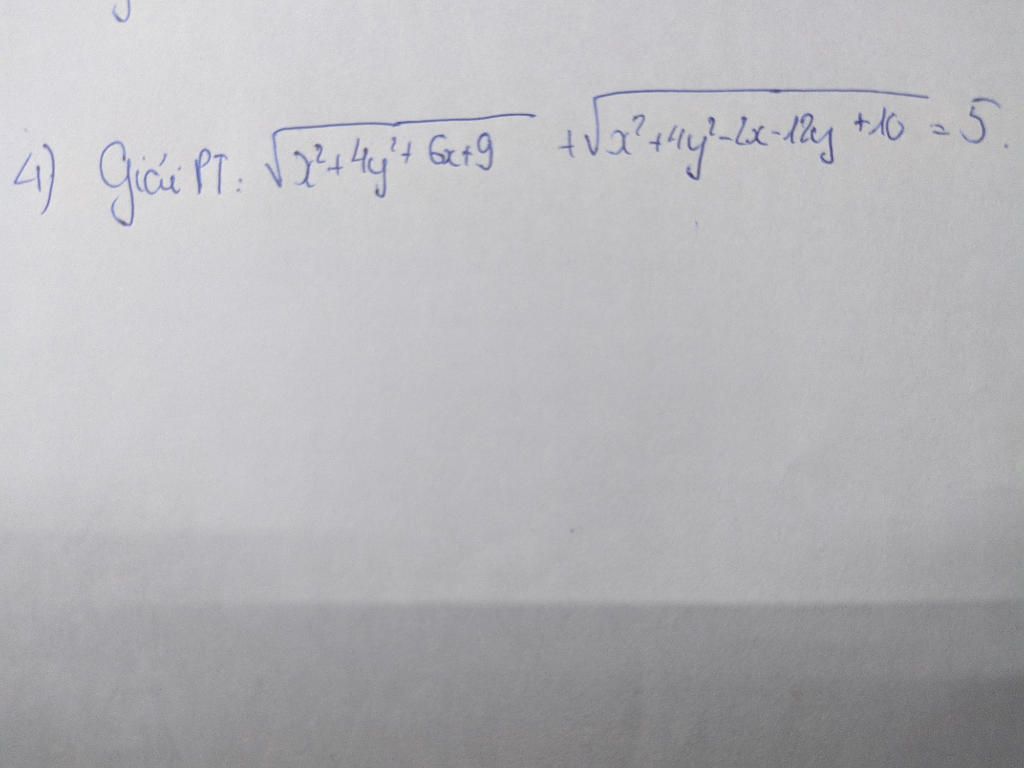 4) Giải PT: √(x²+4y²+6x+9) + √(x²+4y²-2x-12y+10) = 5.